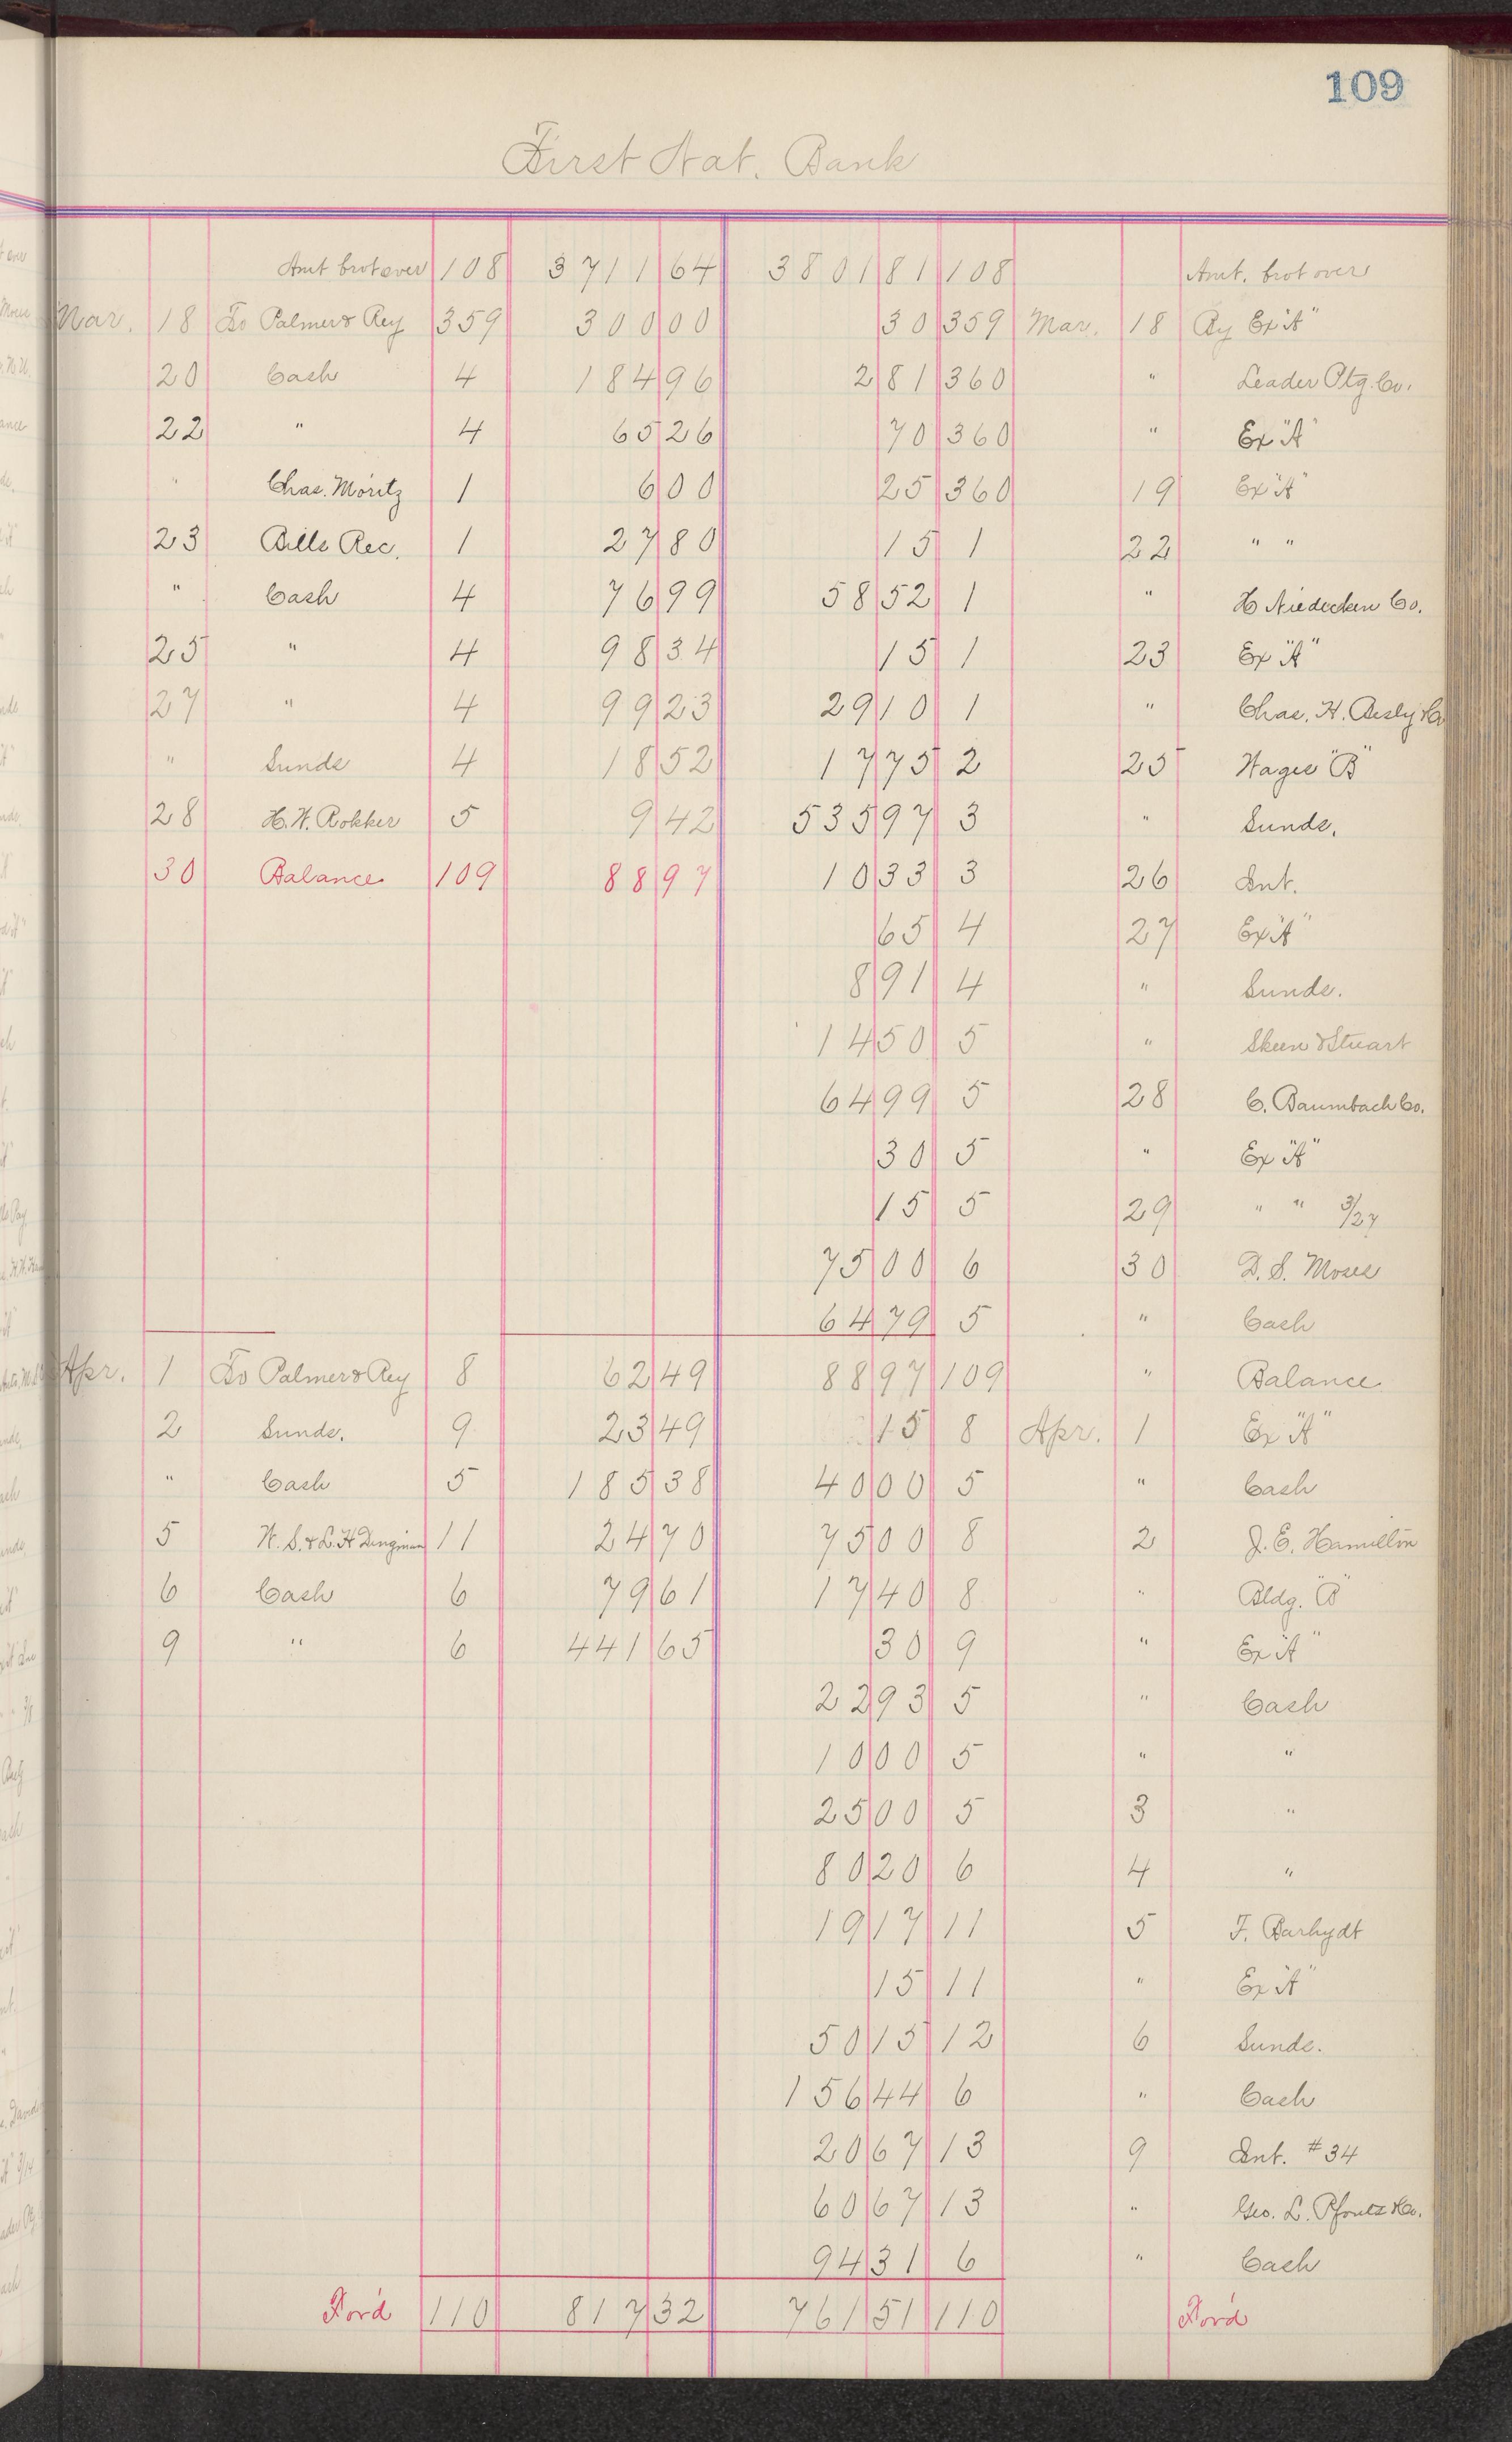 109
First Nat. Bank
Amt brot over 108 3711 64 3801 81 108 Amt. brot over
Mar. 18 To Palmer & Rey 359 300 00 30 359 Mar. 18 By Ex "A"
20 Cash 4 184 96 2 81 360 " Leader Ptg. Co.
22 " 4 65 26 70 360 " Ex "A"
" Chas. Moritz 1 6 00 25 360 19 Ex "A"
23 Bills Rec. 1 27 80 15 1 22 " "
" Cash 4 76 99 58 52 1 " H Niedecken Co.
25 " 4 98 34 15 1 23 Ex "A"
27 " 4 99 23 29 10 1 " Chas. H. Besly & Co
" Sunds 4 18 52 17 75 2 25 Wages "B"
28 H. W. Rokker 5 9 42 535 97 3 " Sunds.
30 Balance 109 88 97 10 33 3 26 Int.
65 4 27 Ex "A"
8 91 4 " Sunds.
14 50 5 " Skeen & Stuart
64 99 5 28 C. Baumbach Co.
30 5 " Ex "A"
15 5 29 " " 3/27
75 00 6 30 D. S. Moses
64 79 5 " Cash
Apr. 1 To Palmer & Rey 8 62 49 88 97 109 " Balance
2 Sunds. 9 23 49 15 8 Apr. 1 Ex "A"
" Cash 5 185 38 40 00 5 " Cash
5 W. S. & L. H Dingman 11 24 70 75 00 8 2 J. E. Hamilton
6 Cash 6 79 61 17 40 8 " Bldg. "B"
9 " 6 441 65 30 9 " Ex "A"
22 93 5 " Cash
10 00 5 " "
25 00 5 3 "
80 20 6 4 "
19 17 11 5 F. Barhydt
15 11 " Ex "A"
50 15 12 6 Sunds.
156 44 6 " Cash
20 67 13 9 Int. #34
60 67 13 " Geo. L. Pfouts & Co.
94 31 6 " Cash
For'd 110 817 32 761 51 110 For'd